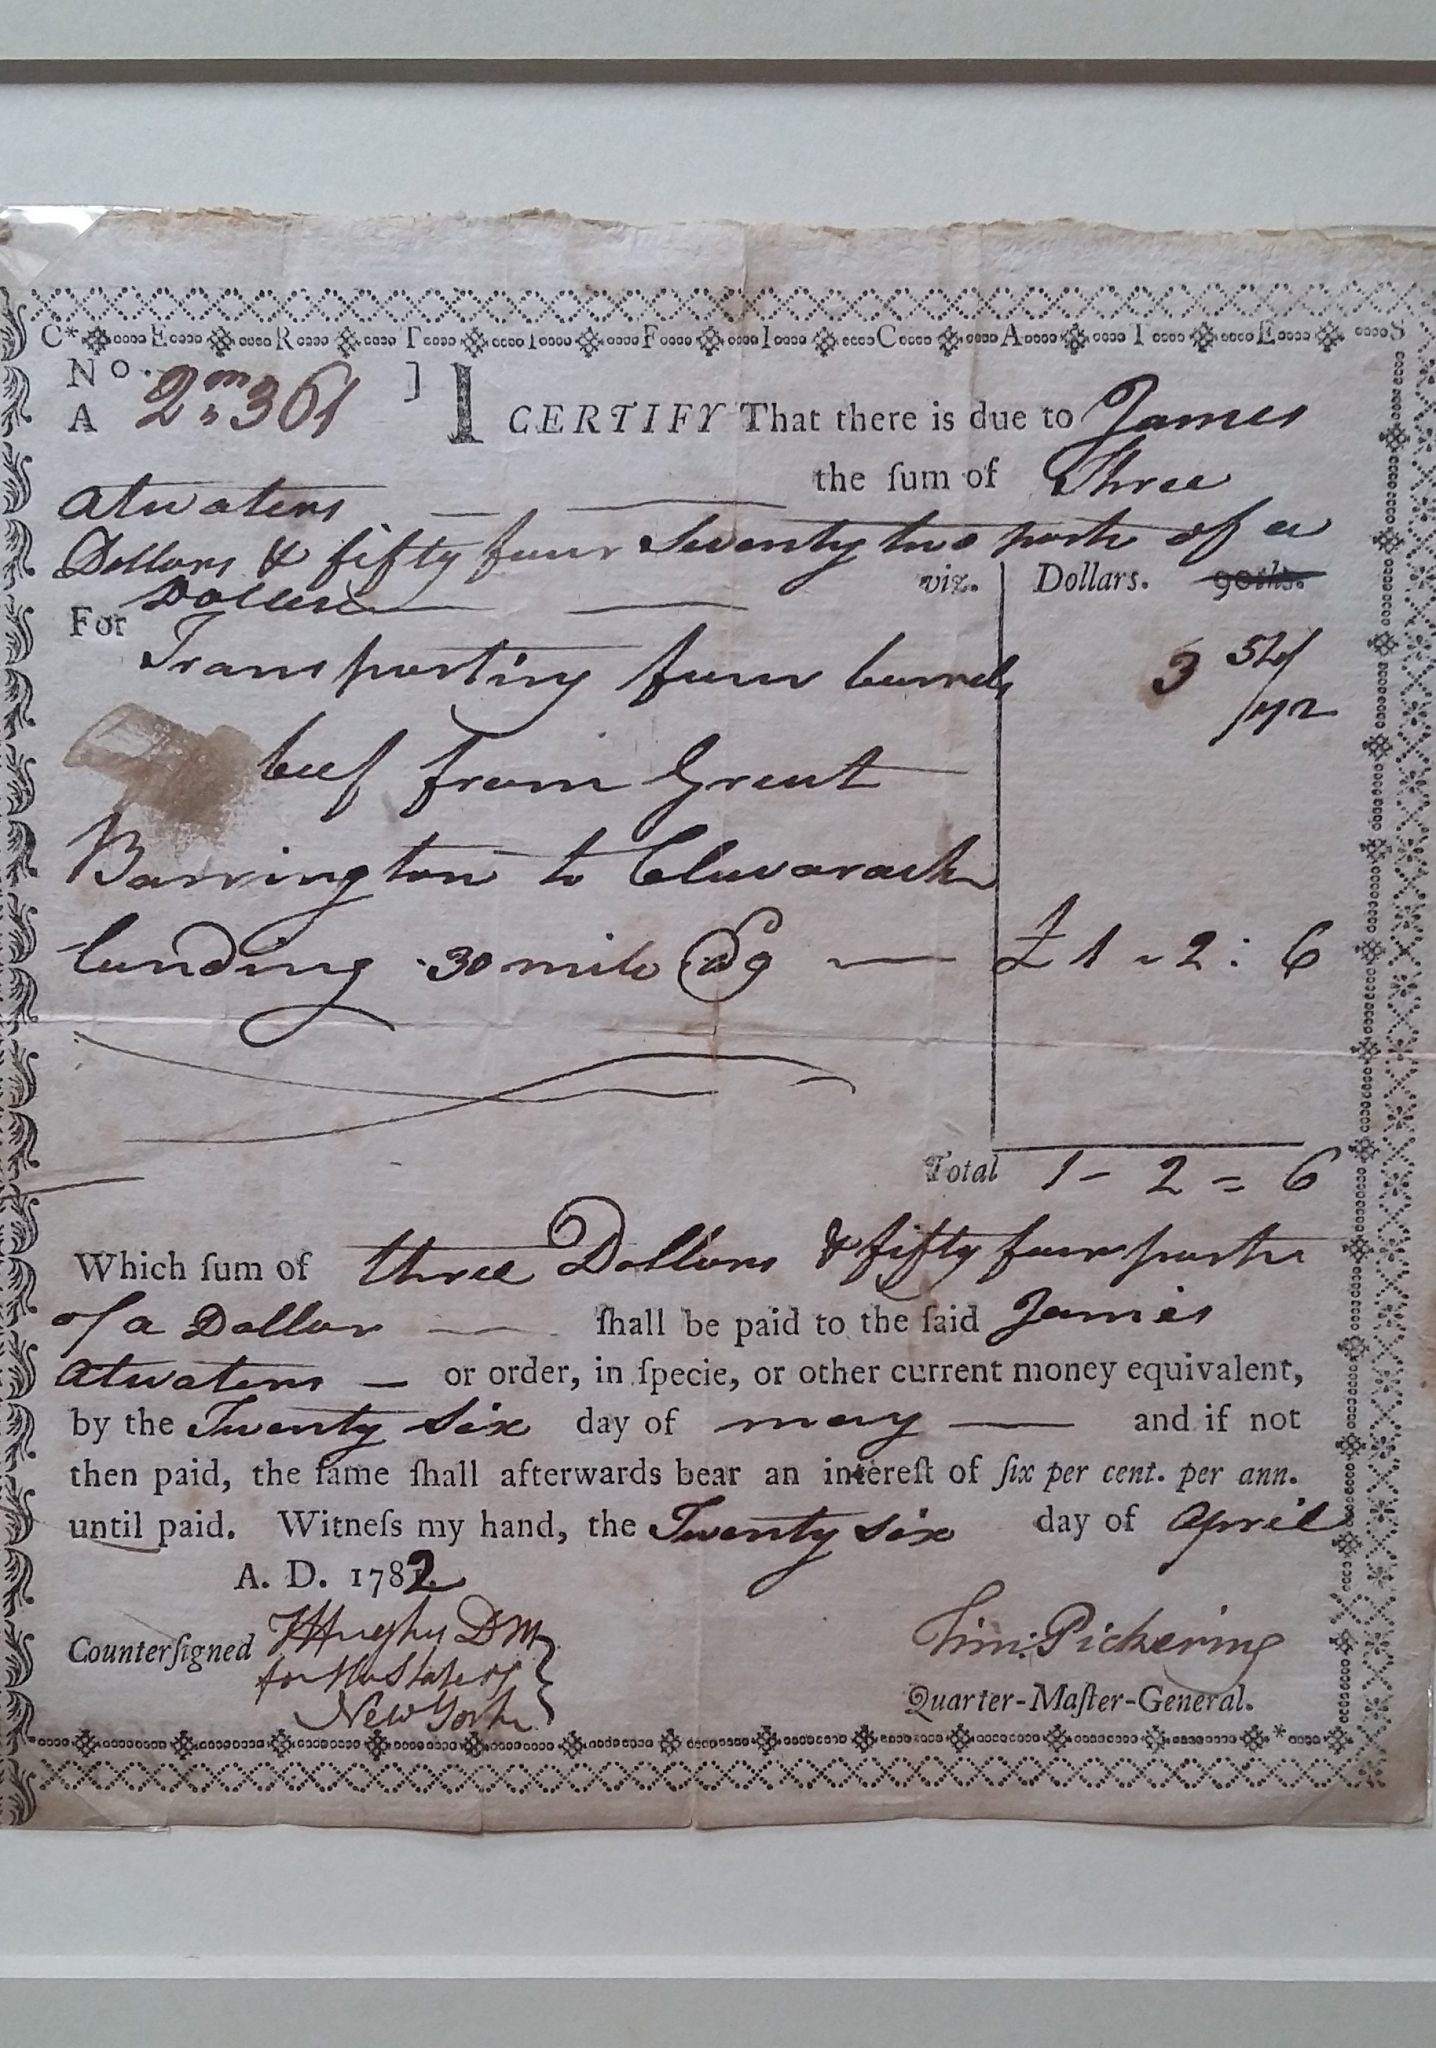 C*ERTIFICATES
No. ]
A 2m361
I CERTIFY That there is due to James
Atwaters — — the ſum of Three
Dollars & fifty four Seventy two parts of a
Dollar — — viz. Dollars. 90ths.
For Transporting four barrels 3 54/72
beef from Great
Barrington to Claverack
landing 30 mile @ 9 — £ 1-2:6
Total 1-2=6
Which ſum of three Dollars & fifty four parts
of a Dollar — ſhall be paid to the ſaid James
Atwaters — or order, in ſpecie, or other current money equivalent,
by the Twenty Six day of may — and if not
then paid, the ſame ſhall afterwards bear an intereſt of ſix per cent. per ann.
until paid. Witneſs my hand, the Twenty Six day of April
A. D. 1782
Counterſigned Hughes DM
for the State of
New York
Tim: Pickering
Quarter-Maſter-General.